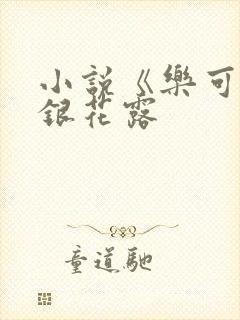 小說《樂可
銀花露
童道馳